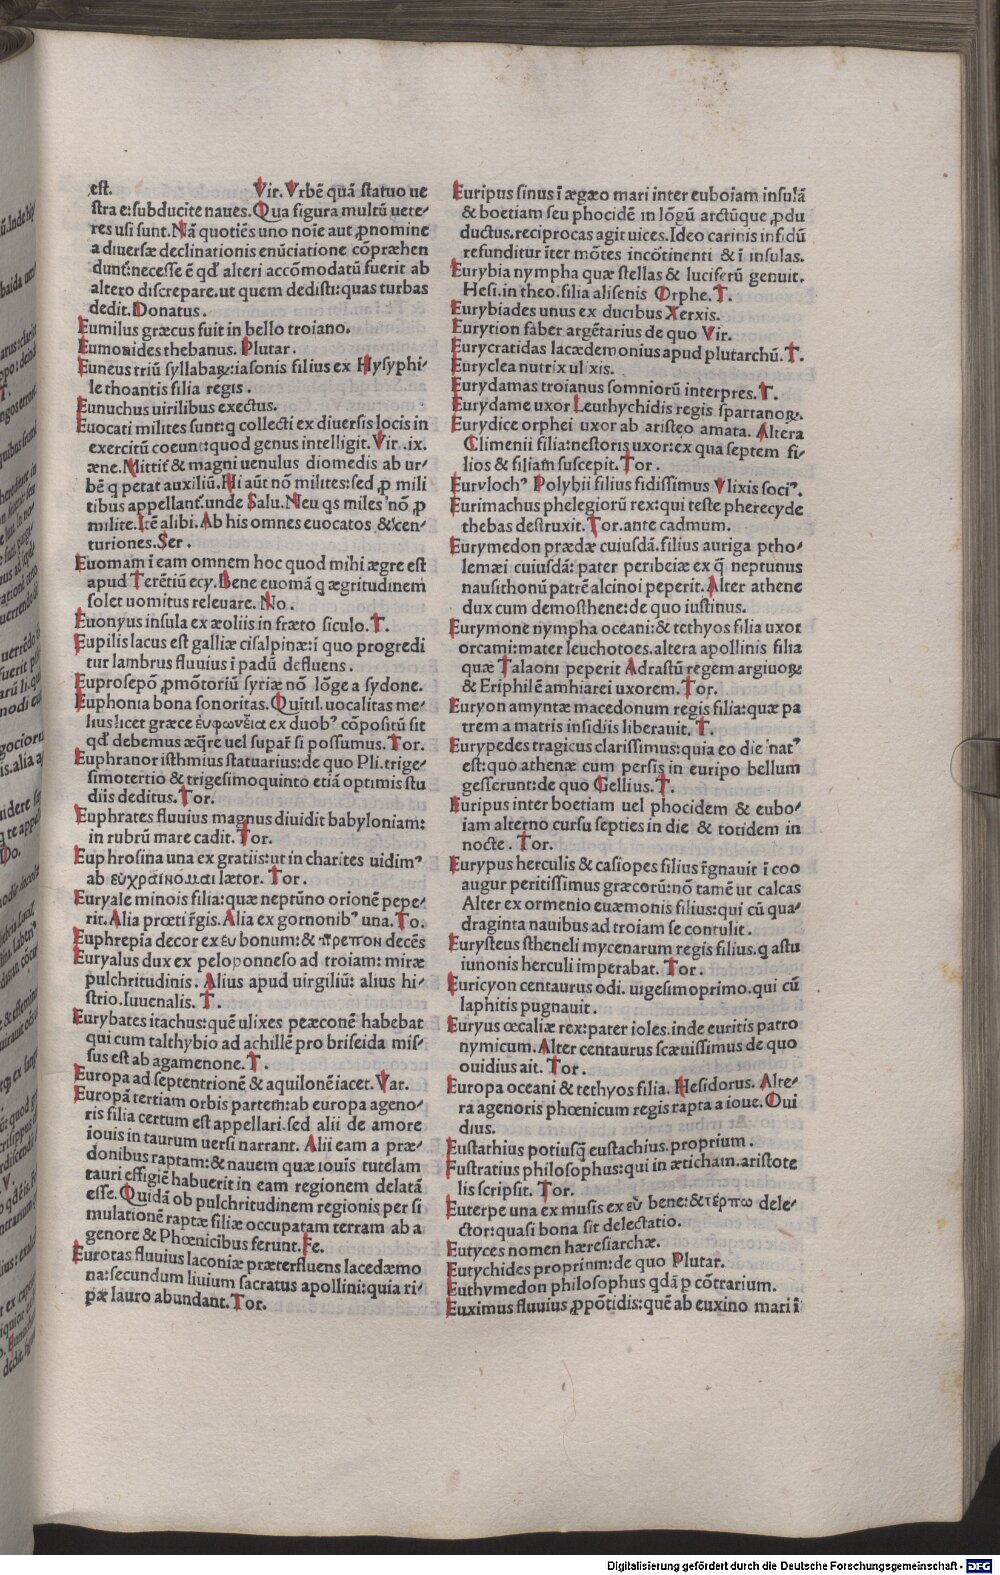 est. Vir. Vrbē quā statuo ue
stra e: subducite naues. Qua figura multū uete⸗
res usi sunt. Nā quotiēs uno noīe aut ꝓnomine
a diuersæ declinationis enūciatione cōpræhen
dunt̃: necesse ē qd' alteri accōmodatū fuerit ab
altero discrepare. ut quem dedisti: quas turbas
dedit. Donatus.
Eumilus græcus fuit in bello troiano.
Eumonides thebanus. Plutar.
Euneus triū syllabaꝝ: iasonis filius ex Hysyphi⸗
le thoantis filia regis.
Eunuchus uirilibus exectus.
Euocati milites sunt: q̄ collecti ex diuersis locis in
exercitū coeunt: quod genus intelligit. Vir. ix.
æne. Mittit̃ & magni uenulus diomedis ab ur⸗
bē q̄ petat auxiliū. Hi aūt nō milites: sed ꝓ mili
tibus appellant̃. unde Salu. Neu qs miles nō ꝓ
milite. Itē alibi. Ab his omnes euocatos & cen⸗
turiones. Ser.
Euomam ī eam omnem hoc quod mihi ægre est
apud Terētiū ecy. Bene euomā q̄ ægritudinem
solet uomitus releuare. No.
Euonyus insula ex æoliis in fræto siculo. T.
Eupilis lacus est galliæ cisalpinæ: ī quo progredi
tur lambrus fluuius ī padū defluens.
Euprosepō ꝓmōtoriū syriæ nō lōge a sydone.
Euphonia bona sonoritas. Quītil. uocalitas me⸗
lius licet græce ἐυφωνεῖα ex duobꝰ cōpositū sit
qd' debemus æq̄re uel supar̃ si possumus. Tor.
Euphranor isthmius statuarius: de quo Pli. trige⸗
simotertio & trigesimoquinto etiā optimis stu
diis deditus. Tor.
Euphrates fluuius magnus diuidit babyloniam:
in rubrū mare cadit. Tor.
Euphrosina una ex gratiis: ut in charites uidimꝰ
ab ευχραίνομαι lætor. Tor.
Euryale minois filia: quæ neptūno orionē pepe⸗
rit. Alia prœti r̃gis. Alia ex gornonibꝰ una. To.
Euphrepia decor ex ἐυ bonum: & πρεπον decēs
Euryalus dux ex peloponneso ad troiam: miræ
pulchritudinis. Alius apud uirgiliū: alius hi⸗
strio. Iuuenalis. T.
Eurybates itachus: quē ulixes peæconē habebat
qui cum talthybio ad achillē pro briseida mis⸗
sus est ab agamenone. T.
Europa ad septentrionē & aquilonē iacet. Var.
Europā tertiam orbis partem: ab europa ageno⸗
ris filia certum est appellari. sed alii de amore
iouis in taurum uersi narrant. Alii eam a præ⸗
donibus raptam: & nauem quæ iouis tutelam
tauri effigiē habuerit in eam regionem delatā
esse. Quidā ob pulchritudinem regionis per si
mulationē raptæ filiæ occupatam terram ab a
genore & Phœnicibus ferunt. Fe.
Eurotas fluuius laconiæ præterfluens lacedæmo
na: secundum liuium sacratus apollini: quia ri⸗
pæ lauro abundant. Tor.
Euripus sinus ī ægæo mari inter euboiam insulā
& boetiam seu phocidē in lōgū arctūque ꝓdu
ductus. reciprocas agit uices. Ideo carinis infidū
refunditur īter mōtes incōtinenti & ī insulas.
Eurybia nympha quæ stellas & luciferū genuit.
Hesi. in theo. filia alisenis Orphe. T.
Eurybiades unus ex ducibus Xerxis.
Eurytion faber argētarius de quo Vir.
Eurycratidas lacædemonius apud plutarchū. T.
Euryclea nutrix ulixis.
Eurydamas troianus somniorū interpres. T.
Eurydame uxor Leuthychidis regis spartanoꝝ.
Eurydice orphei uxor ab aristeo amata. Altera
Climenii filia: nestoris uxor: ex qua septem fi⸗
lios & filiam suscepit. Tor.
Eurylochꝰ Polybii filius fidissimus Vlixis sociꝰ.
Eurimachus phelegiorū rex: qui teste pherecyde
thebas destruxit. Tor. ante cadmum.
Eurymedon prædæ cuiusdā. filius auriga ptho⸗
lemæi cuiusdā: pater peribeiæ ex q̄ neptunus
nausithonū patrē alcinoi peperit. Alter athene
dux cum demosthene: de quo iustinus.
Eurymone nympha oceani: & tethyos filia uxor
orcami: mater leuchotoes. altera apollinis filia
quæ Talaoni peperit Adrastū regem argiuoꝝ
& Eriphilē amhiarei uxorem. Tor.
Euryon amyntæ macedonum regis filia: quæ pa
trem a matris insidiis liberauit. T.
Eurypedes tragicus clarissimus: quia eo die natꝰ
est: quo athenæ cum persis in euripo bellum
gesserunt: de quo Gellius. T.
Euripus inter boetiam uel phocidem & eubo⸗
iam alterno cursu septies in die & totidem in
nocte. Tor.
Eurypus herculis & casiopes filius r̃gnauit ī coo
augur peritissimus græcorū: nō tamē ut calcas
Alter ex ormenio euæmonis filius: qui cū qua⸗
draginta nauibus ad troiam se contulit.
Eurysteus stheneli mycenarum regis filius. q̄ astu
iunonis herculi imperabat. Tor.
Euricyon centaurus odi. uigesimoprimo. qui cū
laphitis pugnauit.
Euryus œcaliæ rex: pater ioles. inde euritis patro
nymicum. Alter centaurus scæuissimus de quo
ouidius ait. Tor.
Europa oceani & tethyos filia. Hesidorus. Alte⸗
ra agenoris phœnicum regis rapta a ioue. Oui
dius.
Eustathius potiusq̄ eustachius. proprium.
Fustratius philosophus: qui in æticham. aristote
lis scripsit. Tor.
Euterpe una ex musis ex εὐ bene: & τέρπω dele⸗
ctor: quasi bona sit delectatio.
Eutyces nomen hæresiarchæ.
Eutychides proprium: de quo Plutar.
Euthymedon philosophus qdā p cōtrarium.
Euximus fluuius ꝓpōtidis: quē ab euxino mari ī
Digitalisierung gefördert durch die Deutsche Forschungsgemeinschaft - DFG